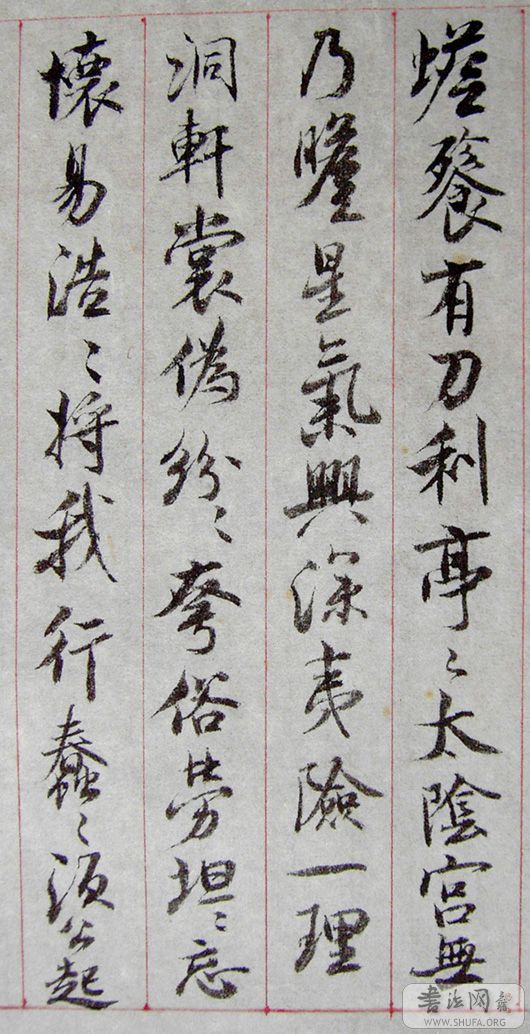 蟾餐有刀利亭〻太陰宫無
乃瞻星氣興深夷險一理
洞軒裳偽紛〻夸俗勞坦〻忘
懷易浩〻將我行蠢〻須公起
书法网
WWW.SHUFA.ORG